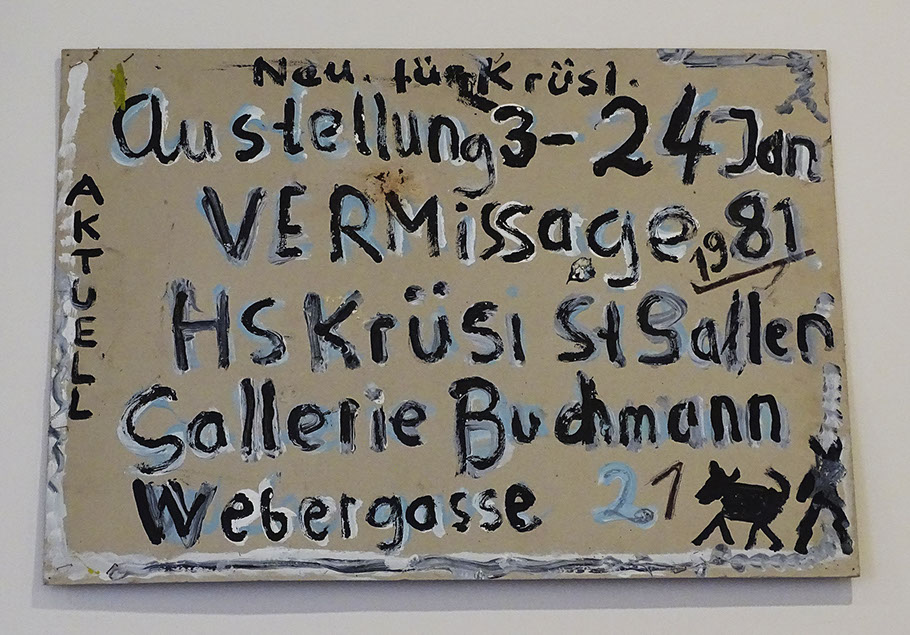 Neu. für Krüsl.
Austellung 3-24 Jan
VERMissage 1981
HS Krüsi St Gallen
Gallerie Buchmann
Webergasse 21
AKTUELL